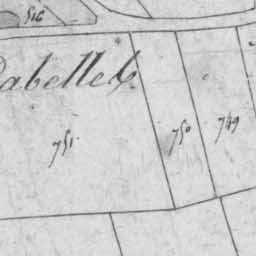 516
751
750
749